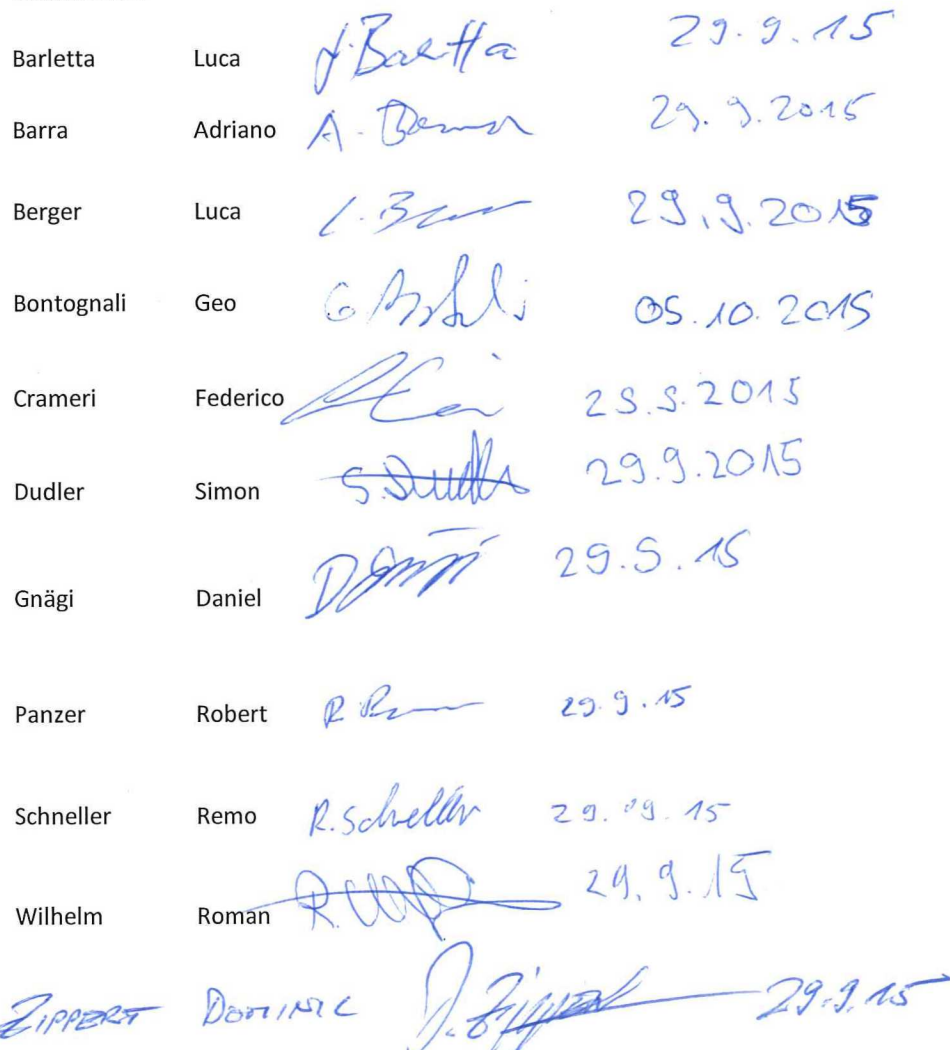 Barletta Luca J. Barletta 29.9.15
Barra Adriano A. Barra 29.9.2015
Berger Luca L. Ber 29.9.2015
Bontognali Geo G 05.10.2015
Crameri Federico 29.9.2015
Dudler Simon S. Dudler 29.9.2015
Gnägi Daniel D Gnägi 29.9.15
Panzer Robert R. 29.9.15
Schneller Remo R. Schneller 29.09.15
Wilhelm Roman R. 29.9.15
ZIPPERT DOMINIC D. Zippert 29.9.15